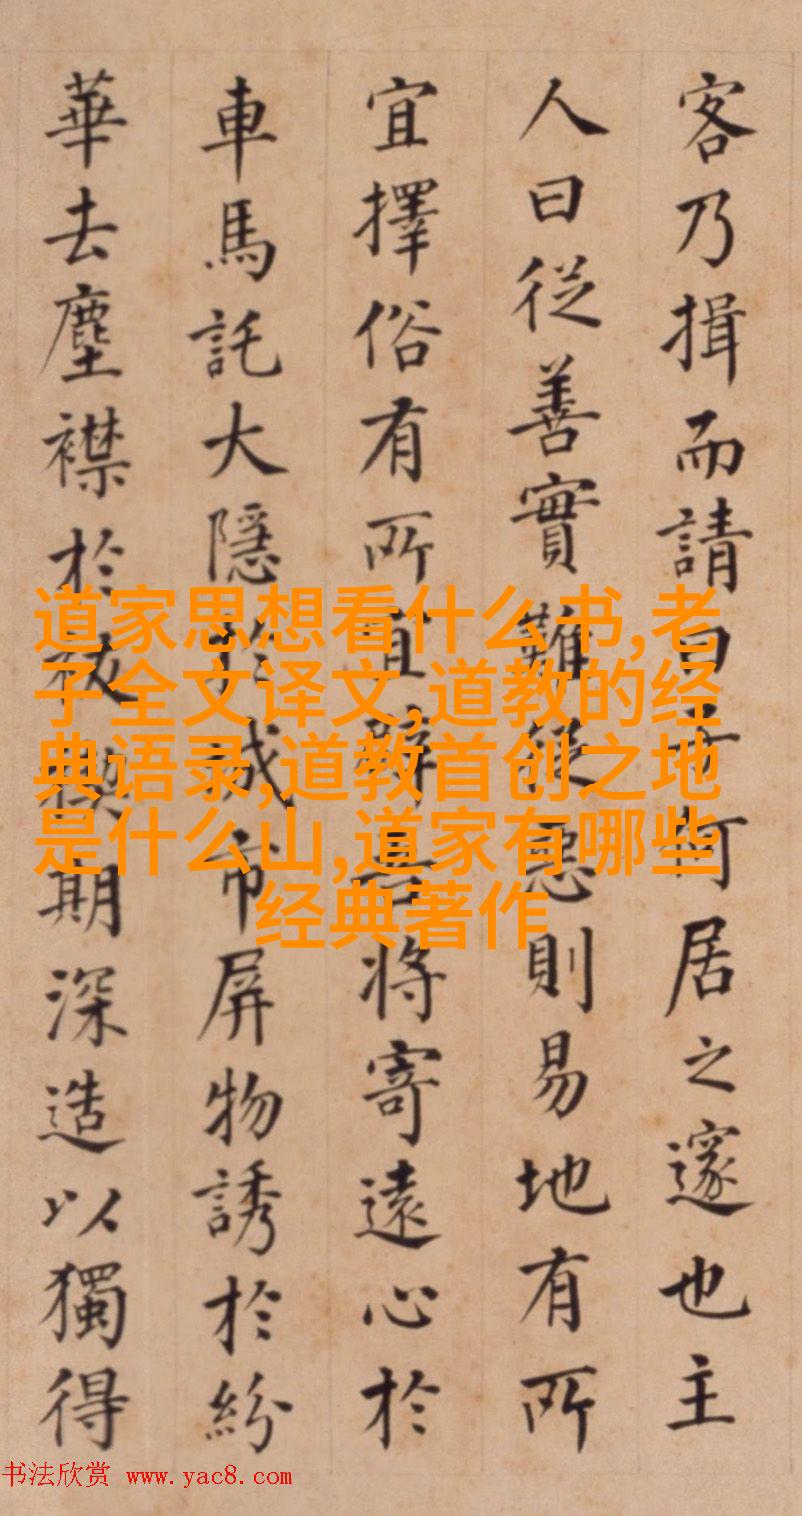 客乃揖而請曰何居之邃也主
人曰從善實難從惡則易地有所
宜擇俗有所宜辟吾將寄遠心於
車馬託大隱於城市屏物誘於紛
華去塵襟於祓禊期深造以獨得
道家思想看什么书,老
子全文译文,道教的经
典语录,道教首创之地
是什么山,道家有哪些
经典著作
书法欣赏 www.yac8.com